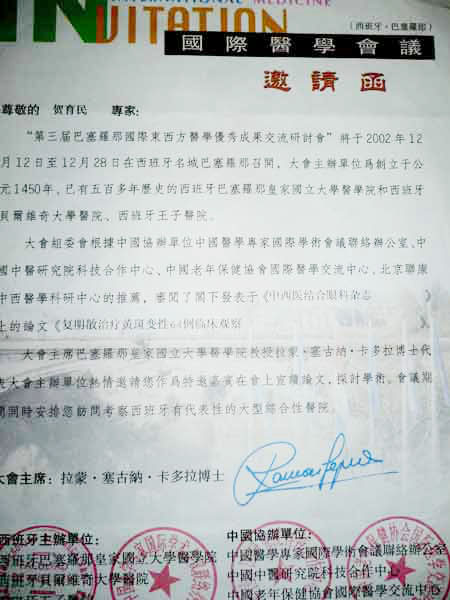 INTERNATIONAL MEDICINE
INVITATION
(西班牙·巴塞羅那)
國際醫學會議
邀請函
尊敬的 贺育民 專家:
“第三届巴塞羅那國際東西方醫學優秀成果交流研討會”將于2002年12
月12日至12月28日在西班牙名城巴塞羅那召開。大會主辦單位爲創立于公
元1450年,已有五百多年歷史的西班牙巴塞羅那皇家國立大學醫學院和西班牙
貝爾維奇大學醫院、西班牙王子醫院。
大會組委會根據中國協辦單位中國醫學專家國際學術會議聯絡辦公室、中
國中醫研究院科技合作中心、中國老年保健協會國際醫學交流中心、北京聯康
中西醫學科研中心的推薦,審閱了閣下發表于《中西医结合眼科杂志 》
上的論文《复明散治疗黄斑变性64例临床观察
大會主席巴塞羅那皇家國立大學醫學院教授拉蒙·塞古納·卡多拉博士代
表大會主辦單位熱情邀請您作爲特邀嘉賓在會上宣讀論文,探討學術。會議期
間同時安排您訪問考察西班牙有代表性的大型綜合性醫院。
大會主席:拉蒙·塞古納·卡多拉博士
西班牙主辦單位: 中國協辦單位:
西班牙巴塞羅那皇家國立大學醫學院 中國醫學專家國際學術會議聯絡辦公室
西班牙貝爾維奇大學醫院 中國中醫研究院科技合作中心
西班牙王子醫院 中國老年保健協會國際醫學交流中心